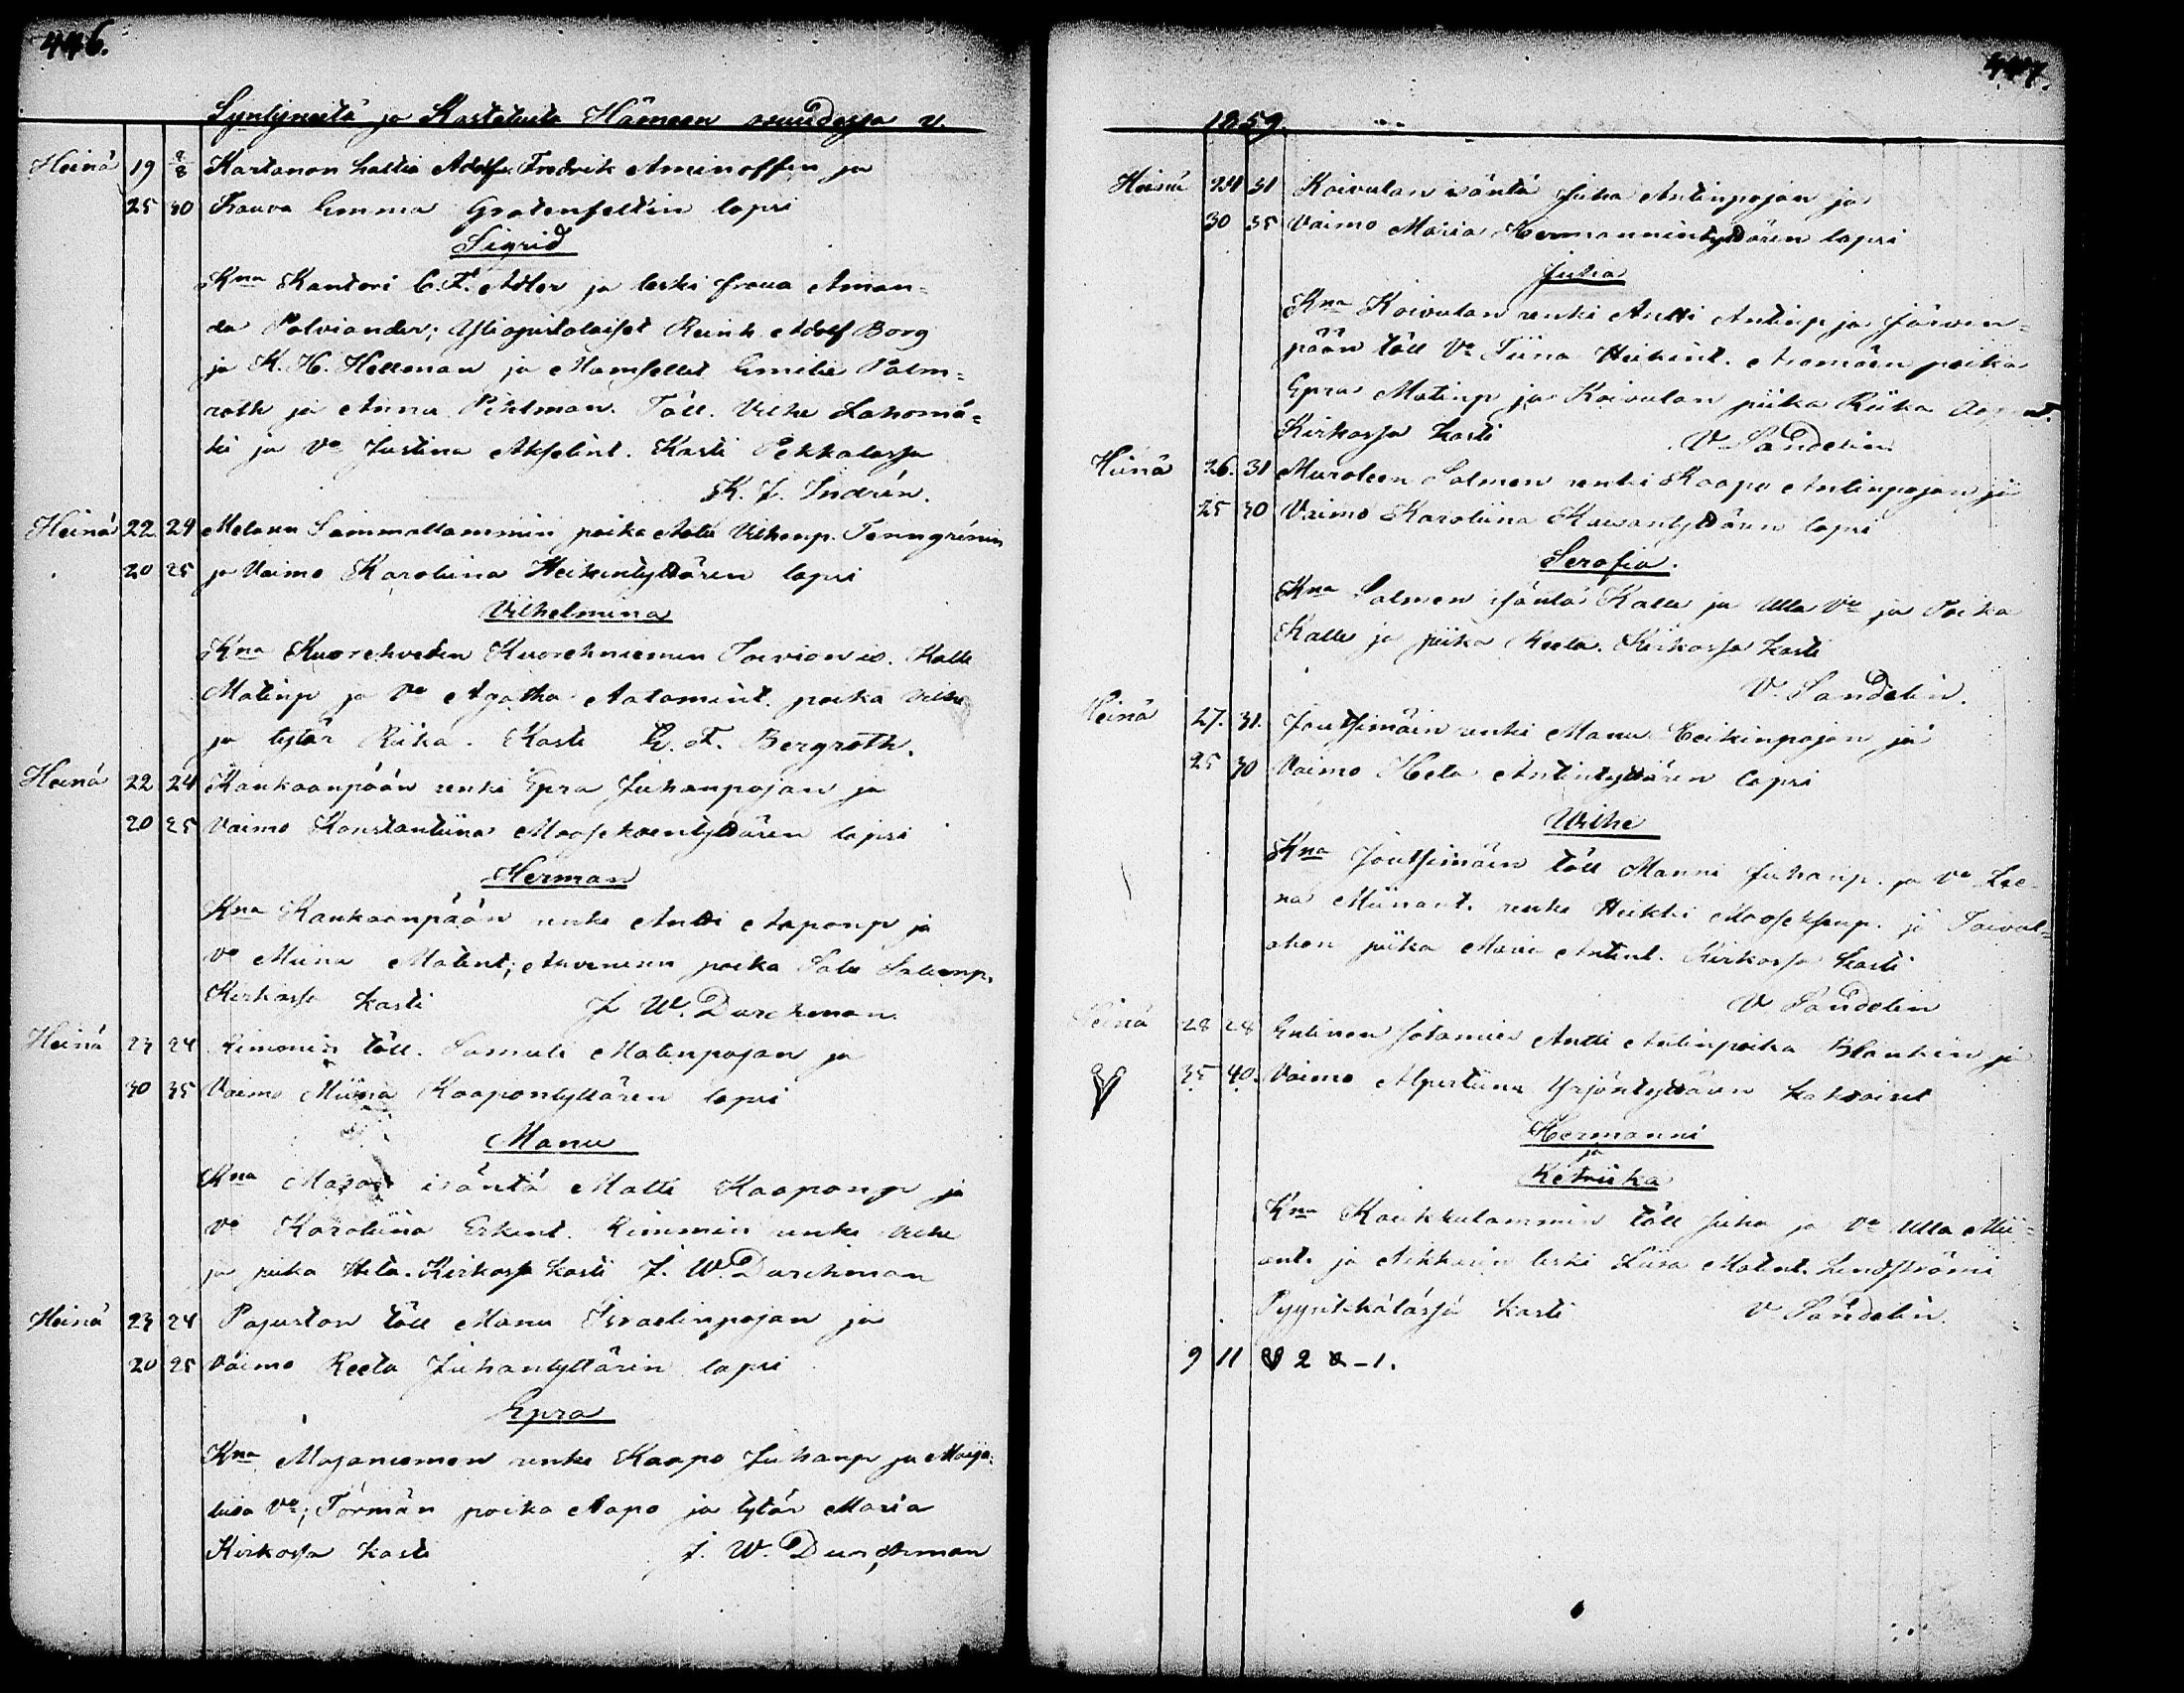 446.
Syntyneitä ja Kastetuita Hämeen osuudessa v.
Heinä 19 2/8 Kartanon haltia Adolf Fredrik Aminoffin ja
25 30 Frouva Emma Grotenfeltin lapsi
Sigrid
Kna Kantori C. F. Adler ja leski frouva Aman=
da Polviander; Yliopistolaiset Reinh. Adolf Borg
ja K. H. Hellman ja Mamsellet Emilie Palm=
roth ja Anna Pihlman. Täll. Vilhe Lahomä=
ki ja Vo Justina Akselint. Kasti Pekkalassa
K. J. Indrén.
Heinä 22 24 Melasen Sammallammin poika Antti Vilhenp. Tenngrénin
20 25 ja Vaimo Karoliina Heikintyttären lapsi
Vilhelmina
Kna Kuoreheveden Kuorehniemen Toivion is. Kalle
Matinp ja Vo Agatha Aatamint. poika Vilhe
ja tytär Riika. Kasti E. F. Bergroth.
Heinä 22 24 Kankaanpään renki Epra Juhanpojan ja
20 25 Vaimo Konstantiina Mooseksentyttären lapsi
Herman
Kna Kankaanpään renki Antti Aaponp ja
Vo Miina Matint; poika Salu Salunp.
Kirkossa kasti J. W. Durchman.
Heinä 23 24 Rimmin täll. Samuli Matinpojan ja
30 35 Vaimo Miina Kaapontyttären lapsi
Manu
Kna isäntä Matti Kaaponp ja
Vo Karoliina Erkint. Rimmin renki Vilhe
ja piika Heta. Kirkossa kasti J. W. Durchman
Heinä 23 24 Pajuston täll Manu Israelinpojan ja
20 25 Vaimo Reeta Juhantyttärin lapsi
Epra
Kna Mäjäniemen renki Kaapo Juhanp ja Maija=
liisa Vo; Törmän poika Aapo ja tytär Maria
Kirkossa kasti J. W. Durchman
447.
1859.
Heinä 24 31 Koivulan isäntä Juha Antinpojan ja
30 35 Vaimo Maria Hermannintyttären lapsi
Julia
Kna Koivulan renki Antti Antinp ja Järven=
pään täll Vo Tiina Heikint. poika
Epra Matinp ja Koivulan piika Riika
Kirkossa kasti V. Sandelin
Heinä 26. 31 Muroleen Salmen renki Kaapo Antinpojan ja
25 30 Vaimo Karoliina Kaisantyttären lapsi
Serafia.
Kna Salmen isäntä Kalle ja Ulla Vo ja Poika
Kalle ja piika Reeta. Kirkossa kasti
V. Sandelin.
Heinä 27. 31. Joutsimäin renki Manu Heikinpojan ja
25 30 Vaimo Heta Antintyttären lapsi
Wilhe
Kna Joutsimäen täll Manni Juhanp. ja Vo Lee=
na Miinant. renki Heikki Mooseksenp. ja Toival=
ahon piika Maria Antint. Kirkossa kasti
V Sandelin
Heinä 28 28 Entinen sotamies Antti Antinpoika Blankin ja
35 40. Vaimo Alpertiina Yrjöntyttären kaksoiset
Hermanni
ja
Retriika
Kna Kaukkulammin täll Juha ja Vo Ulla Mii=
ant. ja leski Liisa Matint. Lindströmi
Pyynikkälässä kasti V. Sandelin.
9 11 2 – 1.